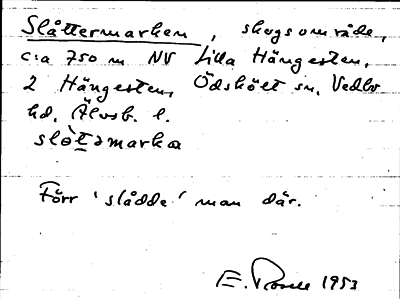 Slåttermarken, skogsområde,
c:a 750 m NV Lilla Hängesten,
2 Hängesten, Ödskölt sn, Vedbo
hd, Älvsb. l.
slòtəmarka
Förr 'slådde' man där.
E. 1953